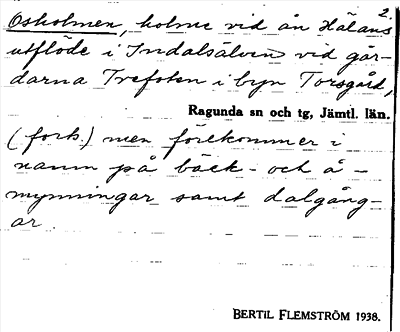 2.
Osholmen, holme vid ån Hälans
utflöde i Indalsälven vid går-
darna Trefoten i byn Torsgård,
Ragunda sn och tg, Jämtl. län.
(forts.) men förekommer i
namn på bäck- och å-
mynningar samt dalgång-
ar.
BERTIL FLEMSTRÖM 1938.